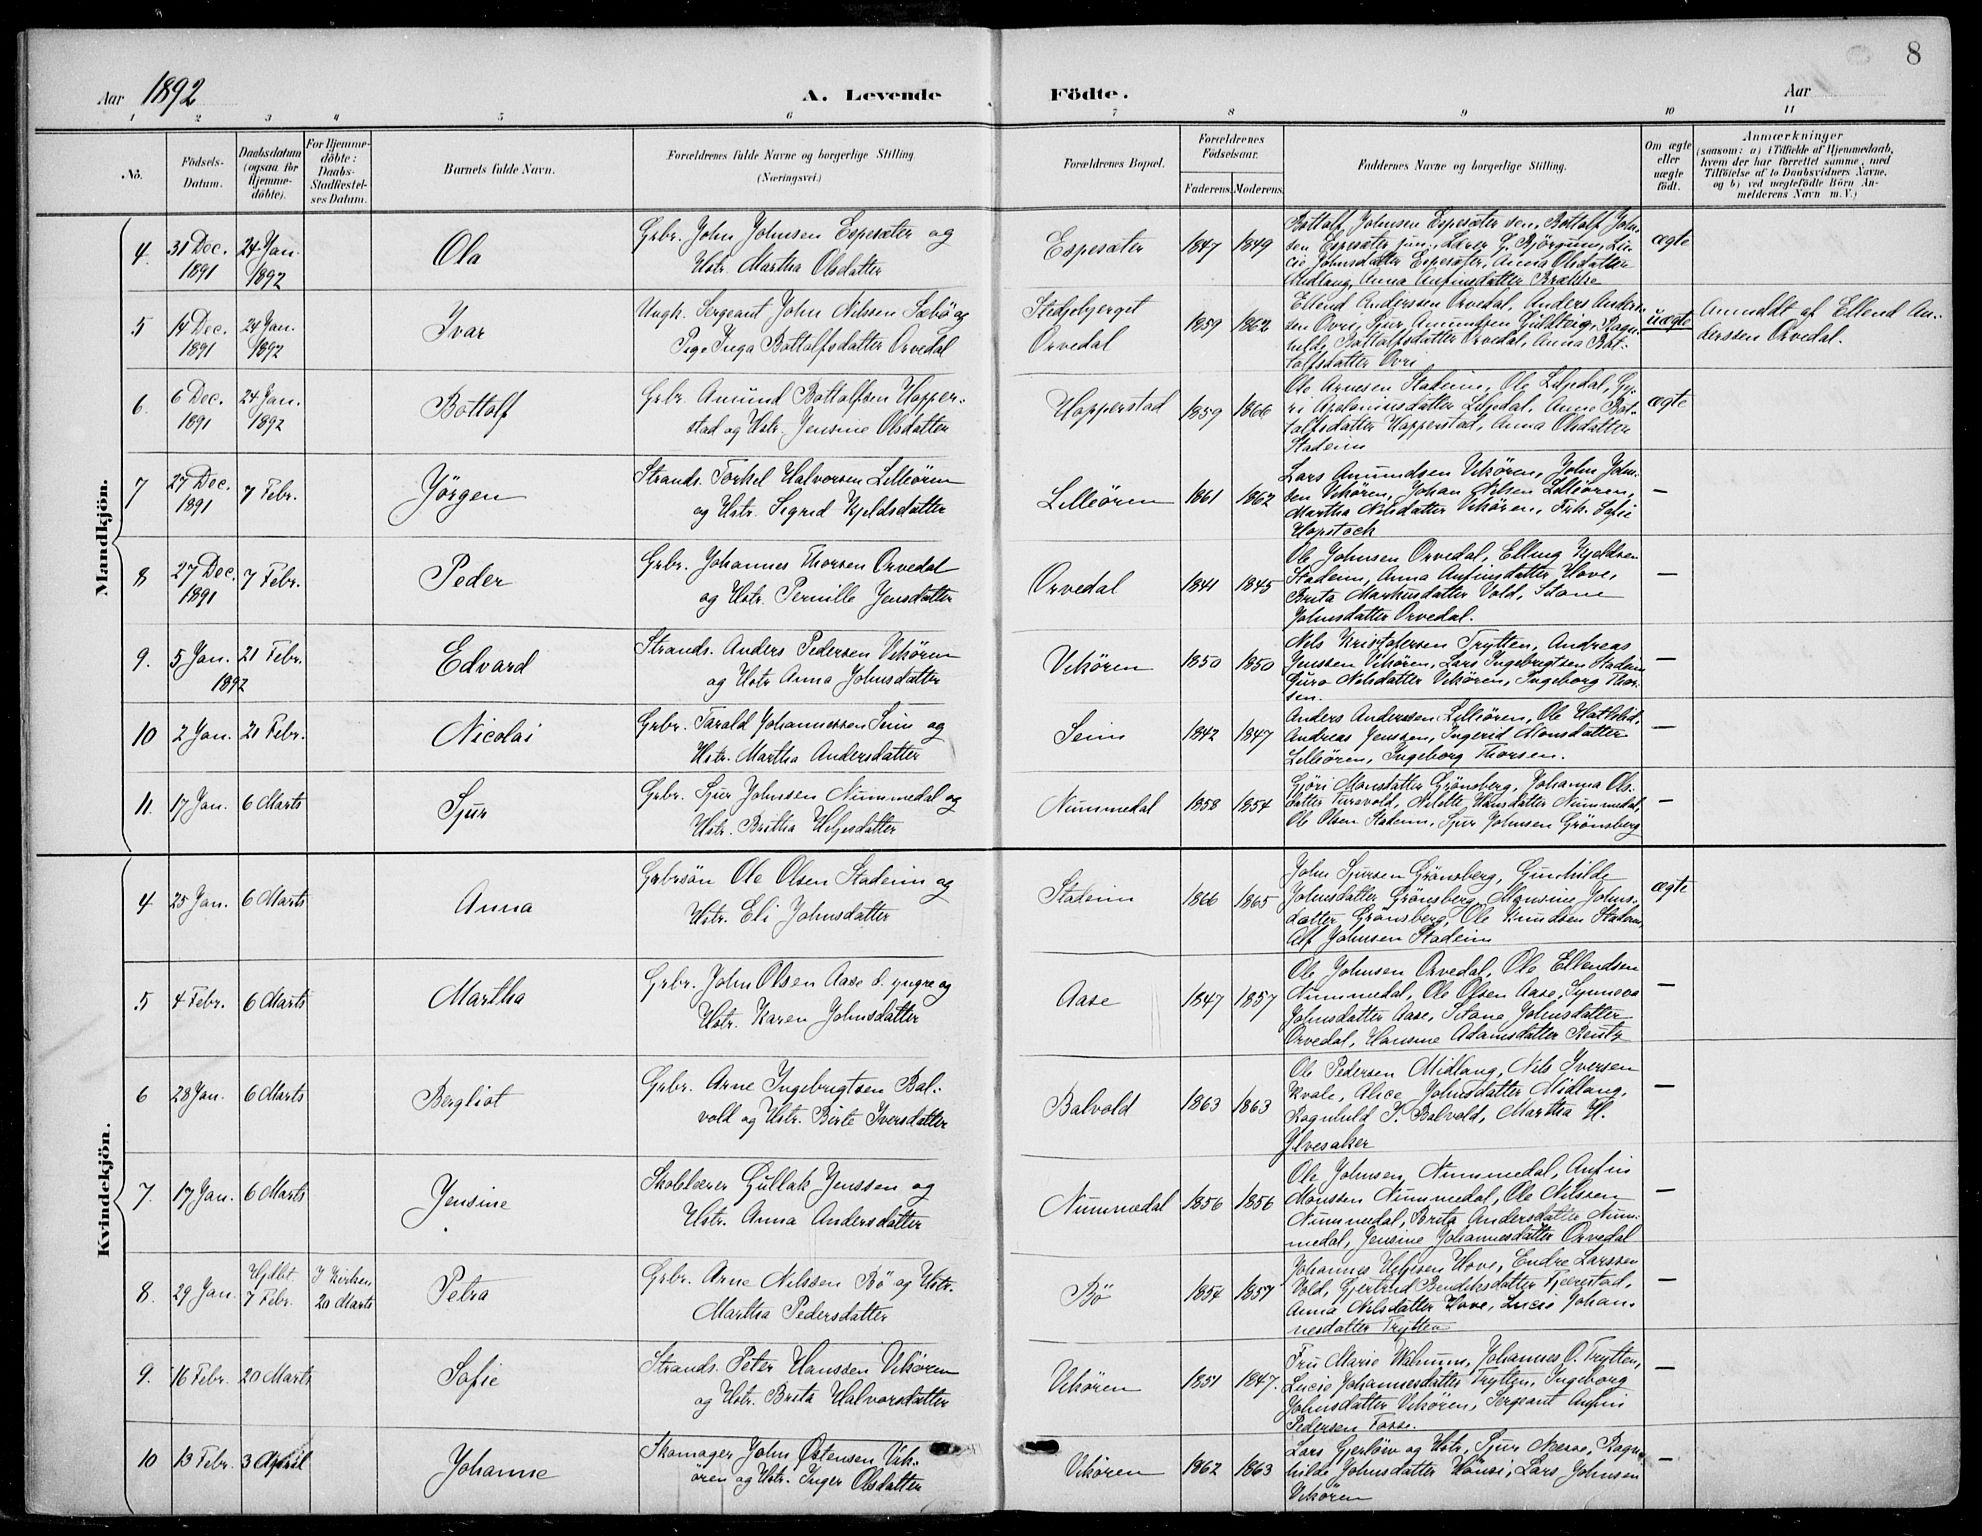 8
Aar 1892 A. Levende Födte. Aar
1 2 3 4 5 6 7 8 9 10 11
No. Födsels-Datum. Daabsdatum (ogsaa for Hjemmedöbte). For Hjemmedöbte: Daabs-Stadfæstelses Datum. Barnets fulde Navn. Forældrenes fulde Navne og borgerlige Stilling. (Næringsvei.) Forældrenes Bopæl. Forældrenes Födselsaar. Faderens. Moderens. Faddernes Navne og borgerlige Stilling. Om ægte eller uægte födt. Anmærkninger (saasom: a) i Tilfælde af Hjemmedaab, hvem der har forrettet samme, med Tilföielse af to Daabsvidners Navne, og b) ved uægtefödte Börn Anmelderens Navn m. V.)
Mandkjön.
4. 31 Dec. 1891 24 Jan. 1892 Ola Grbr. John Johnsen Espesæter og
Hstr. Martha Olsdatter Espesæter 1847 1849 Bottolf Johnsen Espesæter sen, Bottolf John-
sen Espesæter jun., Lærer G. Björgum, Lu-
cie Johnsdatter Espesæter, Anna Olsdatter
Midlang, Anna Anfinsdatter Brække ægte
5 14 Dec. 1891 24 Jan. 1892 Ivar Ungk. Sergeant John Nilssen Sæbö og
Pige Inga Bottolfsdatter Orvedal Stedjebjerget
Orvedal 1859 1862 Ellend Anderssen Orvedal, Anders Anders-
sen Ovri, Sjur Amundsen Guldteig, Ragn-
hilde Bottolfsdatter Orvedal, Anna Bot-
tolfsdatter Ovri uægte Anmeldt af Ellend An-
derssen Orvedal.
6. 6 Dec. 1891 24 Jan. 1892 Bottolf Grbr. Amund Bottolfsen Hopper-
stad og Hstr. Jensine Olsdatter Hopperstad 1859 1866 Ole Arnesen Stadeim, Ole Liljedal, Gu-
ri Apeloniusdatter Liljedal, Anne Bot-
tolfsdatter Hopperstad, Anna Olsdatter
Stadeim ægte
7 27 Dec. 1891 7 Febr. Jörgen Strands. Torkel Halvorsen Lilleören
og Hstr. Sigrid Kjeldsdatter Lilleören 1861 1862 Lars Amundsen Vikören, John John-
sen Vikören, Johan Nilsen Lilleören,
Martha Nilsdatter Vikören, Frk. Sofie
Hopstock —
8 27 Dec. 1891 7 Febr. Peder Grbr. Johannes Thorsen Orvedal
og Hstr. Pernille Jensdatter Orvedal 1841 1845 Ole Johnsen Orvedal, Elling Kjeldsen
Stadeim, Anna Anfinsdatter Hove,
Brita Markusdatter Vold, Sitane
Johnsdatter Orvedal. —
9. 5 Jan. 1892 21 Febr. Edvard Strands. Anders Pedersen Vikören
og Hstr Anna Johnsdatter Vikören 1850 1850 Nils Kristofersen Trytten, Andreas
Jenssen Vikören, Lars Ingebrigtsen Stadeim
Guro Nilsdatter Vikören, Ingeborg Thor-
sen. —
10 2 Jan. 21 Febr. Nicolai Grbr. Tarald Johannessen Seim og
Hstr. Martha Andersdatter Seim 1842 1847 Anders Anderssen Lilleören, Ole Hatlelid,
Andreas Jenssen, Ingerid Monsdatter
Lilleören, Ingeborg Thorsen. —
11. 17 Jan. 6 Marts Sjur Grbr. Sjur Johnsen Nummedal og
Hstr. Britha Helgesdatter Nummedal 1858 1854 Gjöri Monsdatter Grönsberg, Johanna Ols-
datter Turvold, Nilette Hansdatter Nummedal,
Ole Olsen Stadeim, Sjur Johnsen Grönsberg —
Kvindekjön.
4 25 Jan. 6 Marts Anna Grbrsön Ole Olsen Stadeim og
Hstr. Eli Johnsdatter Stadeim 1866 1865 John Sjursen Grönsberg, Gunhilde
Johnsdatter Grönsberg, Monsine Johns-
datter Grönsberg, Ole Knudsen Stadeim,
Alf Johnsen Stadeim ægte
5 4 Febr. 6 Marts Martha Grbr. John Olsen Aase d. yngre og
Hstr. Karen Johnsdatter Aase 1847 1857 Ole Johnsen Orvedal, Ole Ellendsen
Nummedal, Ole Olsen Aase, Synneva
Johnsdatter Aase, Sitane Johnsdatter
Orvedal, Hansine Adamsdatter Reutz —
6 28 Jan. 6 Marts Bergliot Grbr. Arne Ingebrigtsen Bal-
vold og Hstr. Birte Iversdatter Balvold 1863 1863 Ole Pedersen Midlang, Nils Iversen
Kvale, Alice Johnsdatter Midlang,
Ragnhild I. Balvold, Martha H.
Ylvesaker —
7. 17 Jan. 6 Marts Jensine Skolelærer Gullak Jenssen og
Hstr. Anna Andersdatter Nummedal 1856 1856 Ole Johnsen Nummedal, Anfin
Monssen Nummedal, Ole Nilssen
Nummedal, Brita Andersdatter Num-
medal, Jensine Johannesdatter Orvedal —
8. 29 Jan. Hjdbt. 7 Febr. I Kirken 20 Marts Petra Grbr. Arne Nilssen Bö og Hstr.
Martha Pedersdatter Bö 1854 1857 Johannes Helgesen Hove, Endre Larssen
Vold, Gjertrud Bendiksdatter Fjærestad,
Anna Nilsdatter Hove, Lucie Johan-
nesdatter Trytten —
9. 16 Febr. 20 Marts Sofie Strands. Peter Hanssen Vikören
og Hstr. Brita Halvorsdatter Vikören 1851 1847. Fru Marie Wahnum, Johannes O. Trytten,
Lucie Johannesdatter Trytten, Ingeborg
Johnsdatter Vikören, Sergeant Anfin
Pedersen Fosse. —
10 13 Febr. 3 April Johanne Skomager John Östensen Vik-
ören og Hstr. Inger Olsdatter Vikören 1862 1863 Lars Gjerlöw og Hstr, Sjur Næsse, Ragn-
hilde Johnsdatter Hönsi, Lars Johnsen
Vikören —